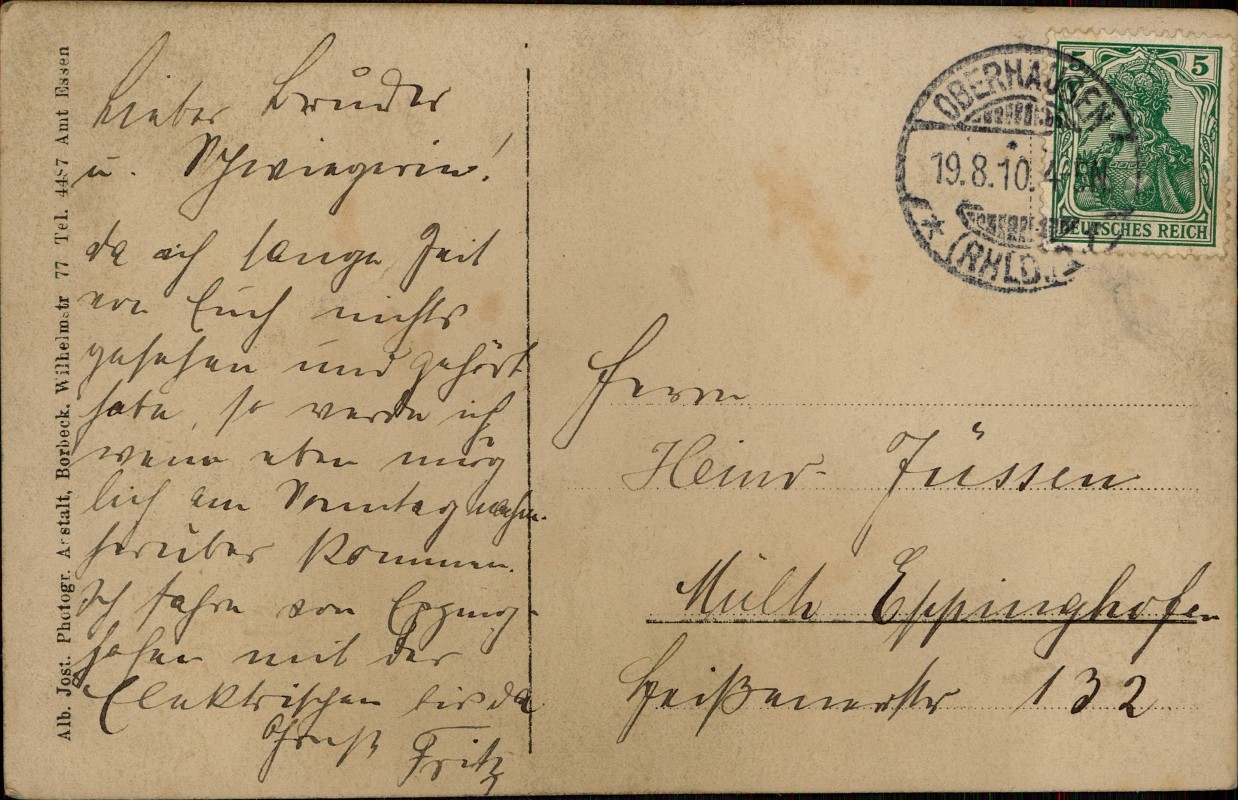 Alb. Jost. Photogr. Anstalt, Borbeck. Wilhelmstr 77 Tel. 4487 Amt Essen
Lieber Bruder
u. Schwiegerin!
da ich lange Zeit
von Euch nichts
gesehen und gehört
habe, so werde ich
wenn eben mög
lich am Sonntag nachm.
herüber kommen.
Ich fahre von Epping-
hofen mit der
Elektrischen bis da
Gruß Fritz
OBERHAUSEN
19.8.10. 4-5N.
(RHLD.)
5 5
DEUTSCHES REICH
Herrn
Heinr Jüssen
Mülh Eppinghofen
Heißenerstr 132